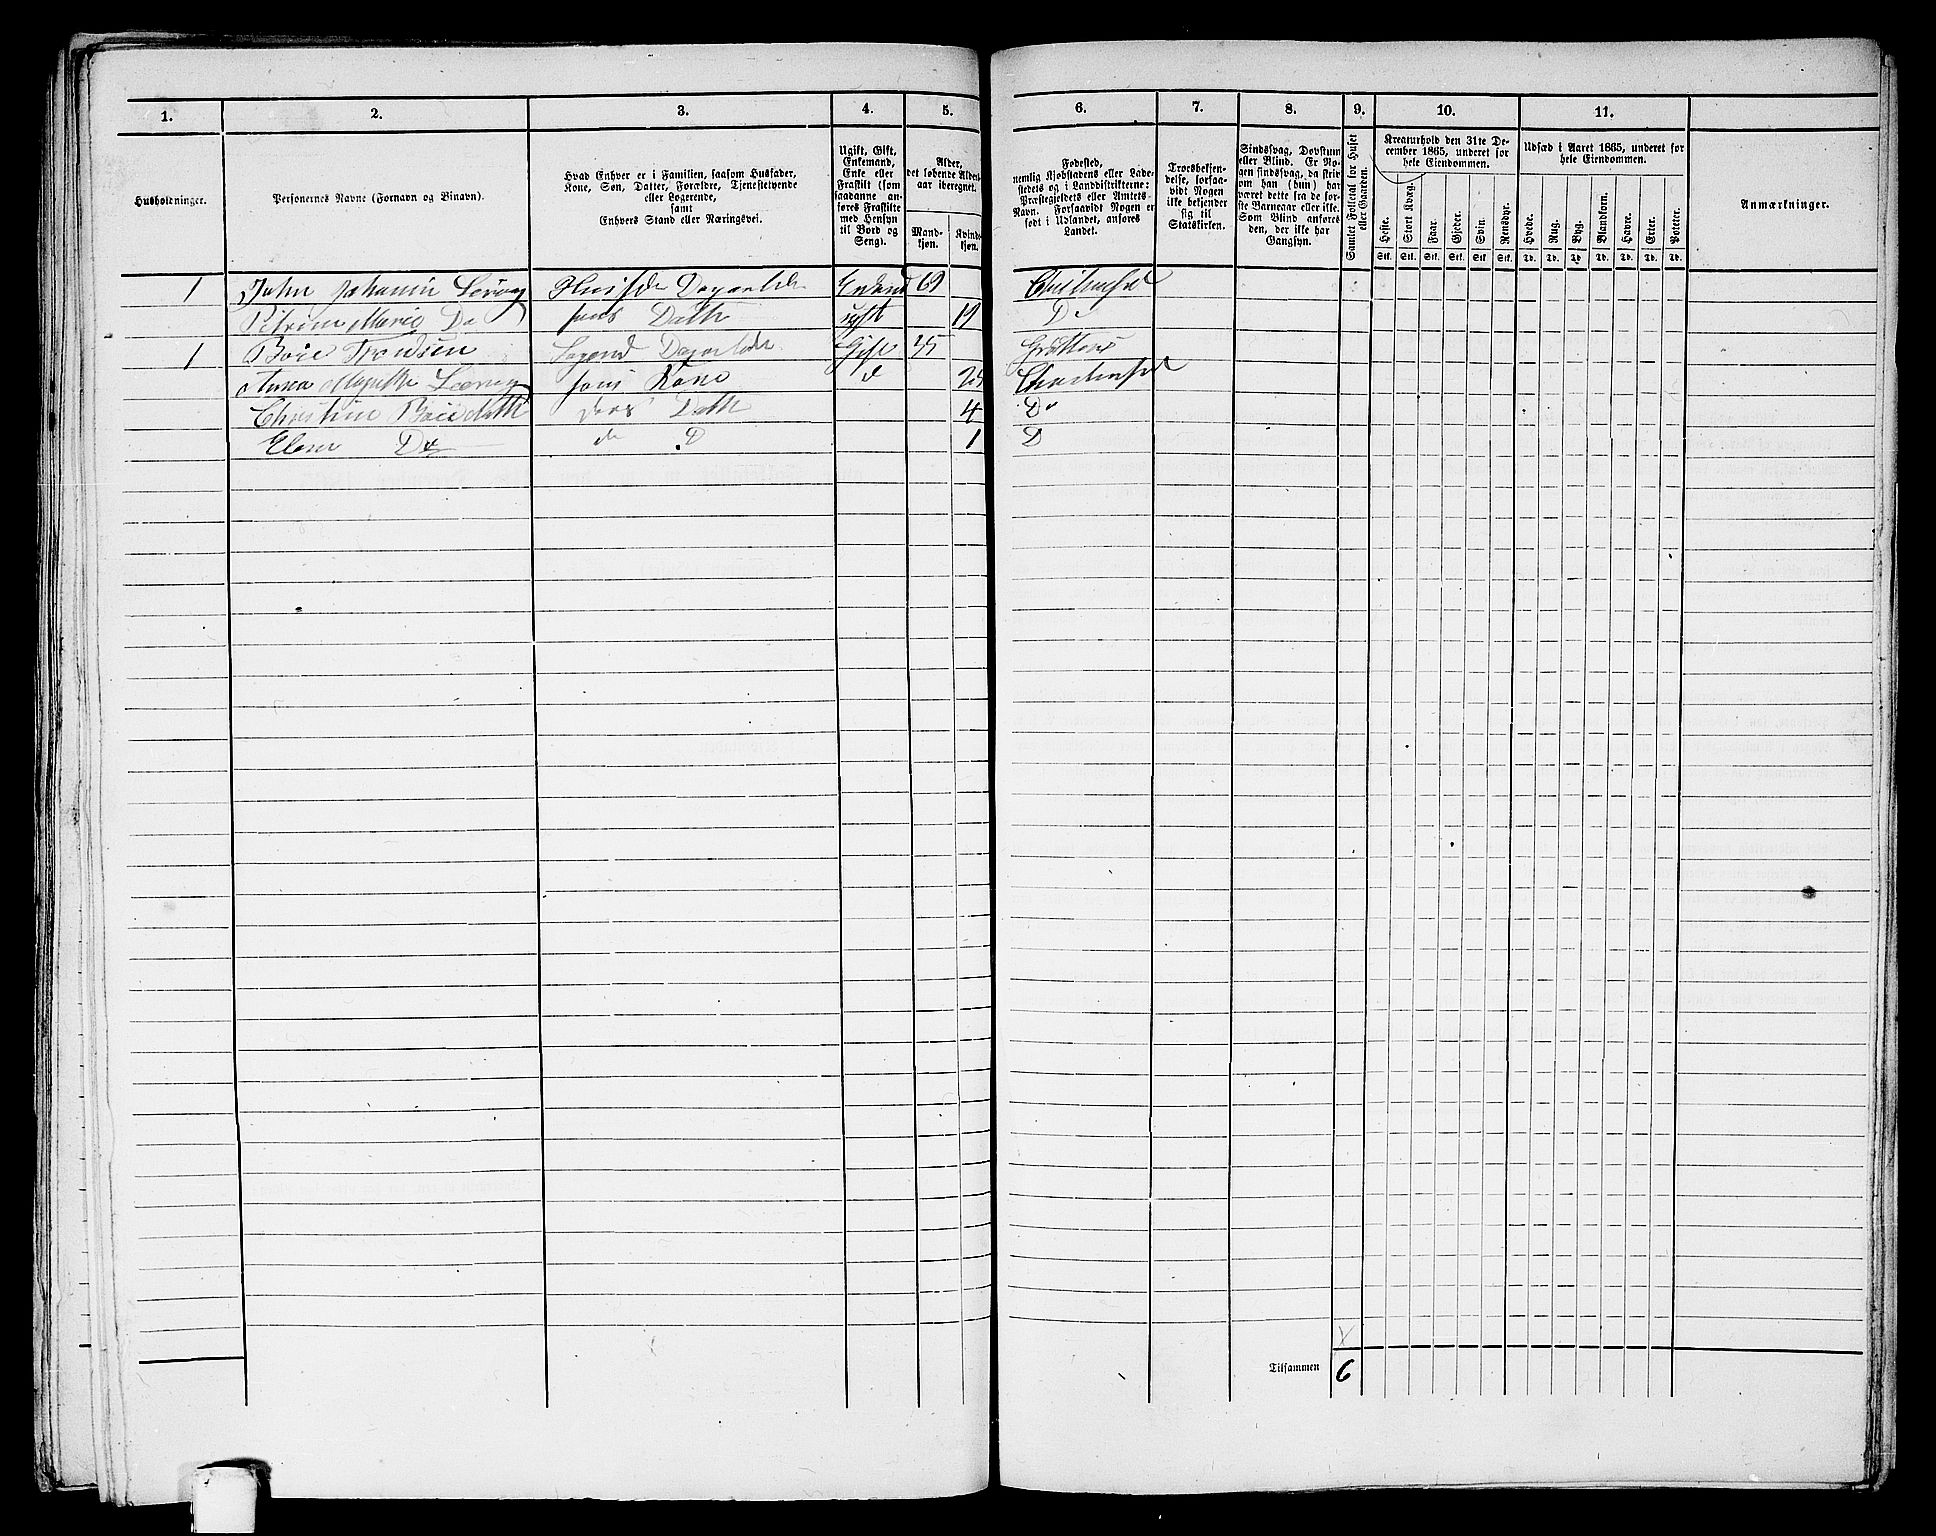 1. 2. 3. 4. 5. 6. 7. 8. 9. 10. 11.
Husholdninger.
Personernes Navne (Fornavn og Binavn).
Hvad Enhver er i Familien, saasom Husfader,
Kone, Søn, Datter, Forældre, Tjenestetyende
eller Logerende,
samt
Enhvers Stand eller Næringsvei.
Ugift, Gift,
Enkemand,
Enke eller
Fraskilt (som
saadanne an-
føres Fraskilte
med Hensyn
til Bord og
Seng).
Alder,
det løbende Alders-
aar iberegnet.
Mand-
kjøn.
Kvind-
kjøn.
Fødested,
nemlig Kjøbstadens eller Lade-
stedets og i Landdistrikterne:
Præstegjeldets eller Amtets
Navn. Forsaavidt Nogen er
født i Udlandet, anføres
Landet.
Troesbekjen-
delse, forsaa-
vidt Nogen
ikke bekjender
sig til
Statskirken.
Sindssvag, Døvstum
eller Blind. Er No-
gen sindssvag, da skriv
om han (hun) har
været dette fra de før-
ste Barneaar eller ikke.
Som Blind anføres
den, der ikke har
Gangsyn.
Samlet Folketal for Huset
eller Gaarden.
Kreaturhold den 31te De-
cember 1865, underet for
hele Eiendommen.
Heste. Stort Kvæg. Faar. Gjeder. Svin. Rensdyr.
Stk. Stk. Stk. Stk. Stk. Stk.
Udsæd i Aaret 1865, underet for
hele Eiendommen.
Hvede. Rug. Byg. Blandkorn. Havre. Erter. Poteter.
Td. Td. Td. Td. Td. Td. Td.
Anmærkninger.
1 John Johannes 69
Marie Do hans Datt ugift 19 Do
1 Boie Logerend Gift 35
Anna hans Kone d
Christine Boiedatt Datt 4 Do
Do do D 1 D
Tilsammen 6